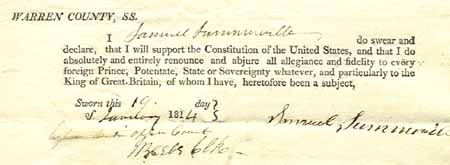 WARREN COUNTY, SS.
I Samuel Summerville do swear and
declare, that I will support the Constitution of the United States, and that I do
absolutely and entirely renounce and abjure all allegiance and fidelity to every
foreign Prince, Potentate, State or Sovereignty whatever, and particularly to the
King of Great-Britain, of whom I have, heretofore been a subject,
Sworn this 19. day
1814 Samuel Summerville
in open Court
Clk